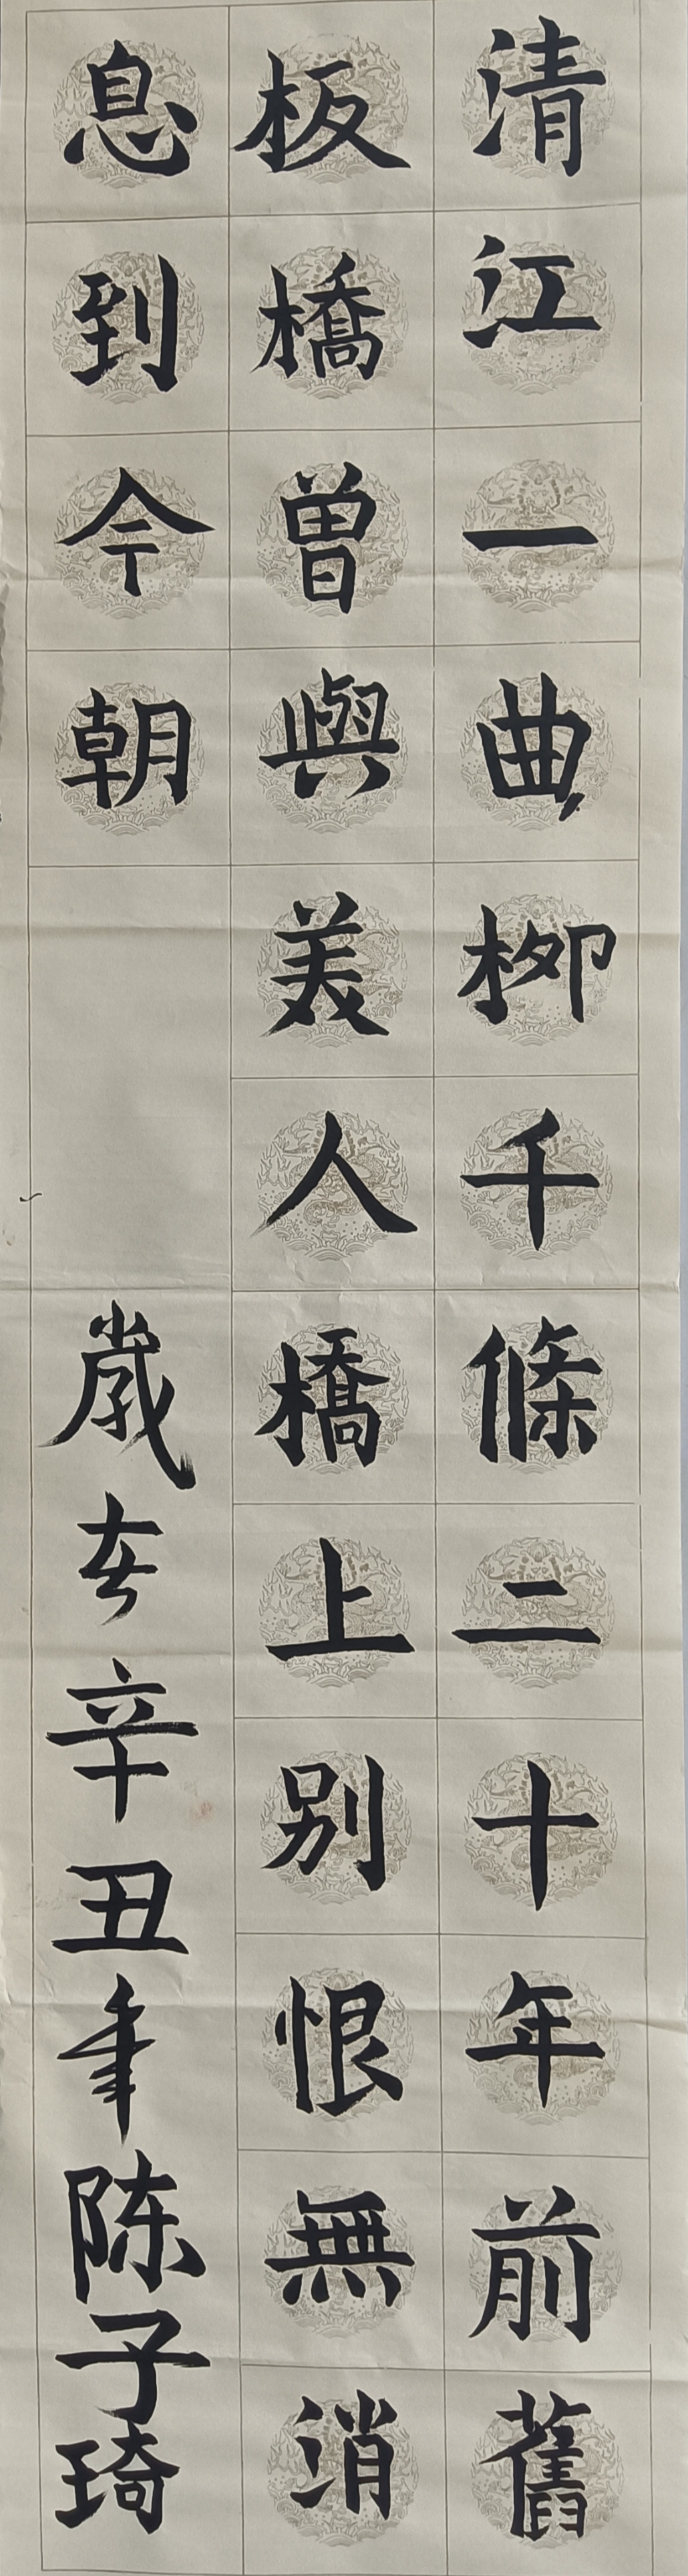 清江一曲柳千條二十年前舊
板橋曽與美人橋上别恨無消
息到今朝
歲在辛丑年陈子琦